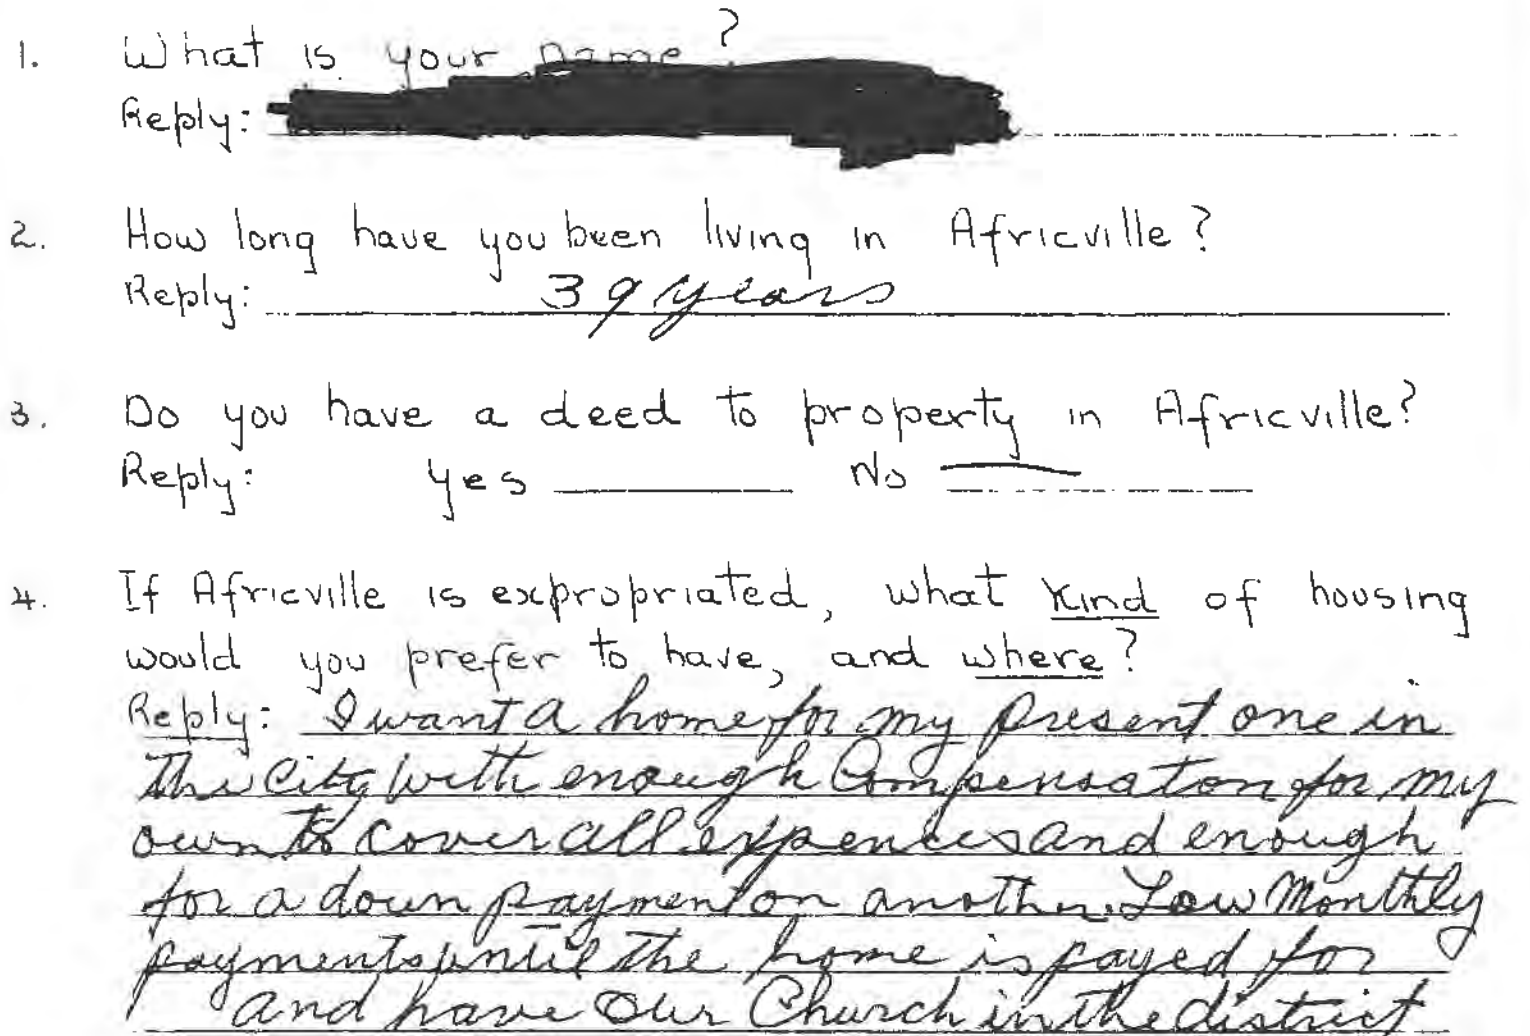 1. What is your name?
Reply:
2. How long have you been living in Africville?
Reply: 39 years
3. Do you have a deed to property in Africville?
Reply: Yes No
4. If Africville is expropriated, what kind of housing
would you prefer to have, and where?
Reply: I want a home for my present one in
the City with enough Compensaton for my
own to cover all expences and enough
for a down payment on another. Low Monthly
payments until the home is payed for
and have Our Church in the district